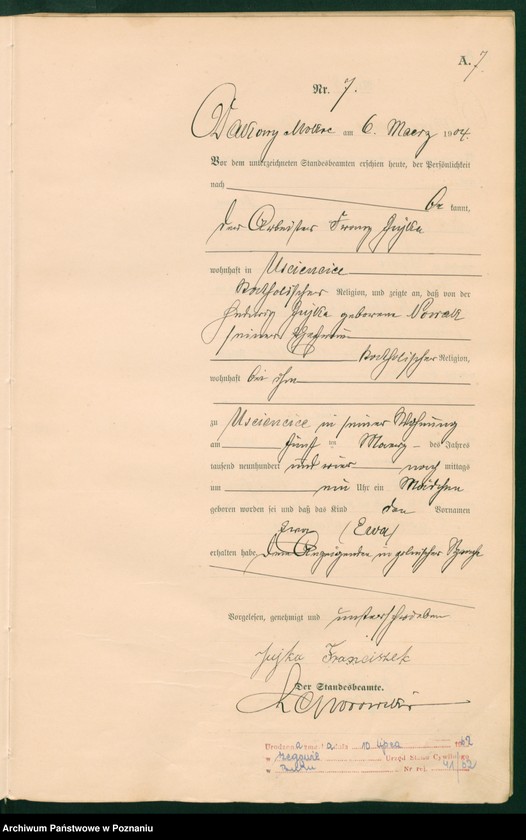 A. 7
Nr. 7.
Dakowy Mokre am 6. Maerz 1904.
Vor dem unterzeichneten Standesbeamten erschien heute, der Persönlichkeit
nach be kannt,
der Arbeiter Franz
wohnhaft in Usciencice
katholischer Religion, und zeigte an, daß von der
Hedwig geborene Nowak
seiner Ehefrau
katholischer Religion,
wohnhaft bei ihm
zu Usciencice in seiner Wohnung
am fünf ten Maerz des Jahres
tausend neunhundert und vier nach mittags
um ein Uhr ein Mädchen
geboren worden sei und daß das Kind den Vornamen
Ewa (Ewa)
erhalten habe. Dem Anzeigenden in polnischer Sprache
Vorgelesen, genehmigt und unterschrieben
Franciszek
Der Standesbeamte.
a zmarł a dnia 10 lipca 1962
w Urząd Stanu Cywilnego
w Nr rej. 41/62
Archiwum Państwowe w Poznaniu